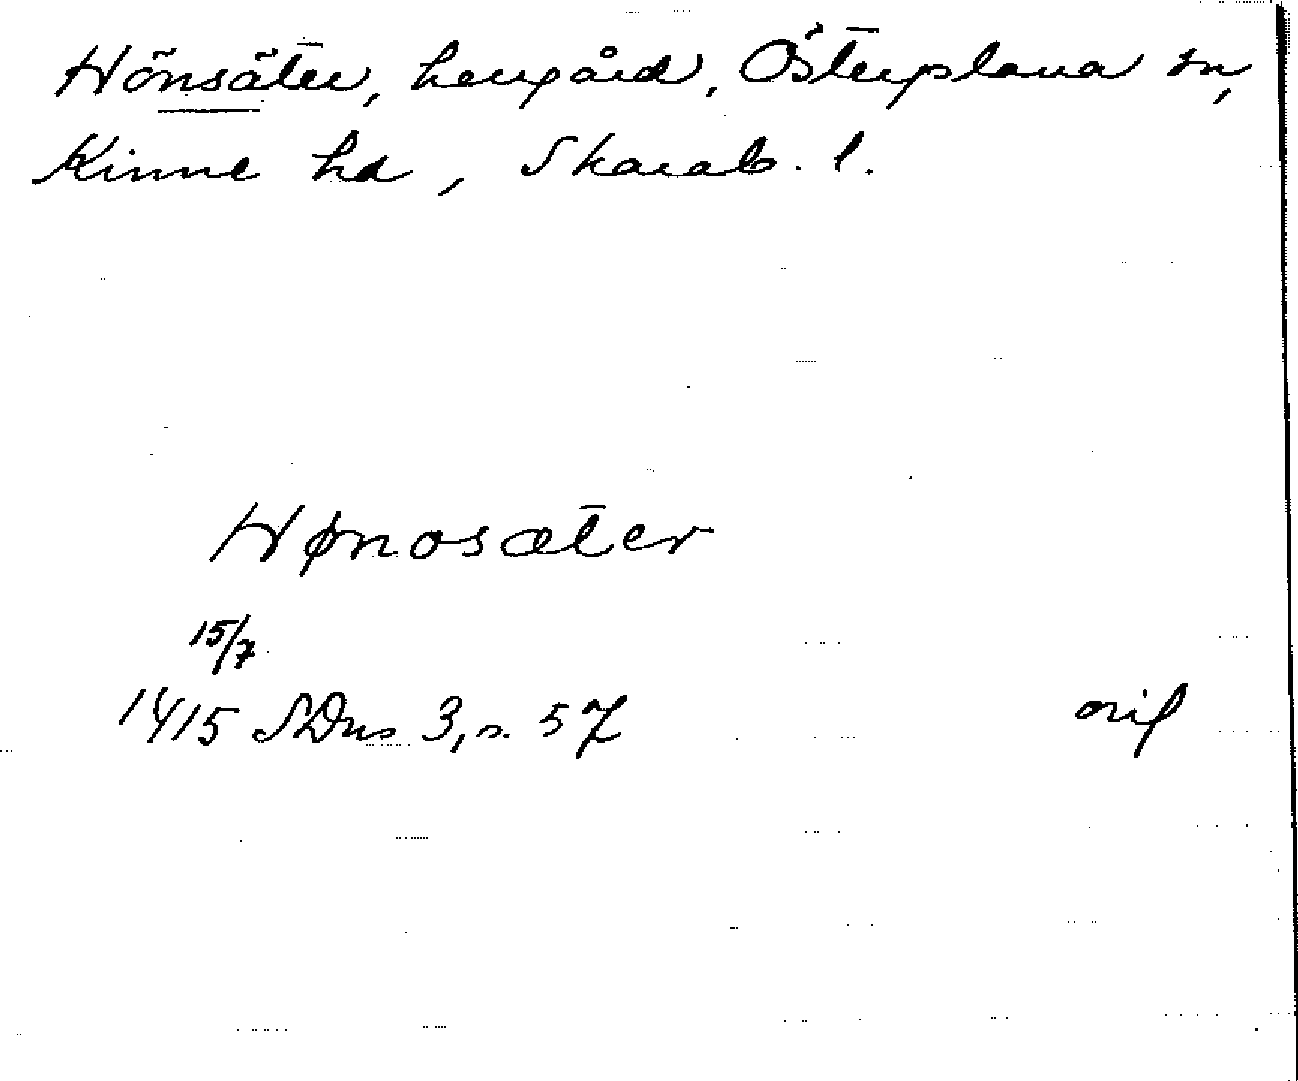 Hönsäter, herrgård, Österplana sn,
Kinne hd, Skarab. l.
Hønosæter
15/7
1415 SDns 3, s. 57 orig